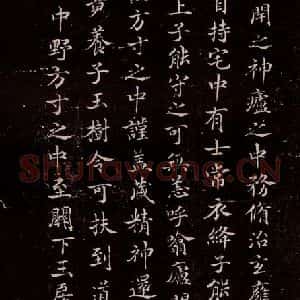 閒之神廬之中務脩治玄膺
自持宅中有士常衣絳子能
上子能守之可無恙呼翕廬間
慶方寸之中謹蓋藏精神還
竟養子玉樹令可扶到道
中野方寸之中至關下玉房
Shufawang.CN